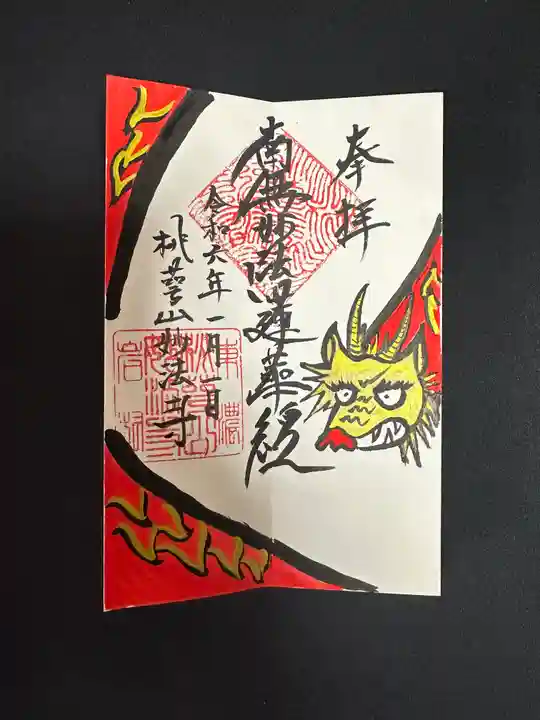 奉拝
南無妙法蓮華経
令和六年一月一日
妙法寺
東濃
岩村